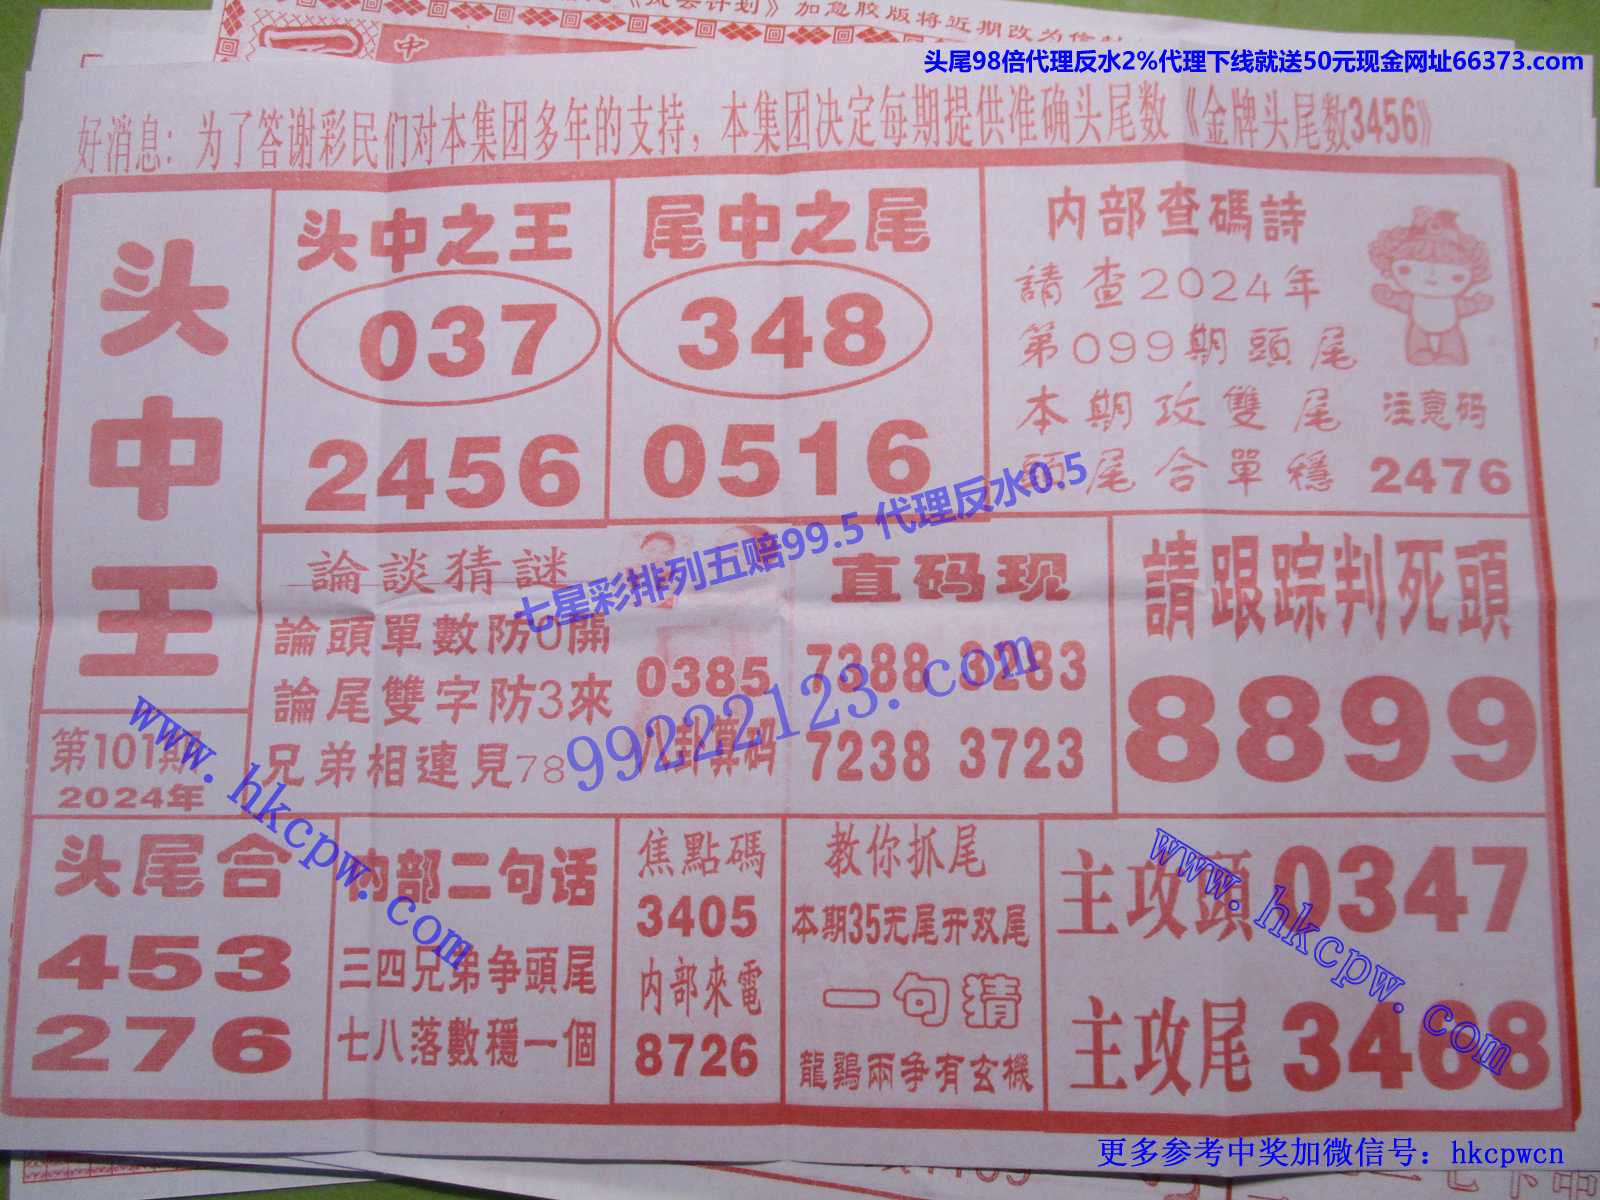 加急胶版将近期改为
中
头尾98倍代理反水2%代理下线就送50元现金网址66373.com
好消息：为了答谢彩民们对本集团多年的支持，本集团决定每期提供准确头尾数《金牌头尾数3456》
头中王
第101期
2024年
头中之王
037
2456
尾中之尾
348
0516
内部查碼詩
請查2024年
第099期頭尾
本期攻雙尾
頭尾合單穩
注意码
2476
論談猜謎
論頭單數防0開
論尾雙字防3來
兄弟相連見78
0385
八卦算码
直码现
7388 3283
7238 3723
請跟踪判死頭
8899
头尾合
453
276
内部二句话
三四兄弟争頭尾
七八落數穩一個
焦點碼
3405
内部來電
8726
教你抓尾
本期35无尾开双尾
一句猜
龍鷄兩争有玄機
主攻頭0347
主攻尾3468
七星彩排列五赔99.5 代理反水0.5
99222123.com
www.hkcpw.com
www.hkcpw.com
更多参考中奖加微信号：hkcpwcn